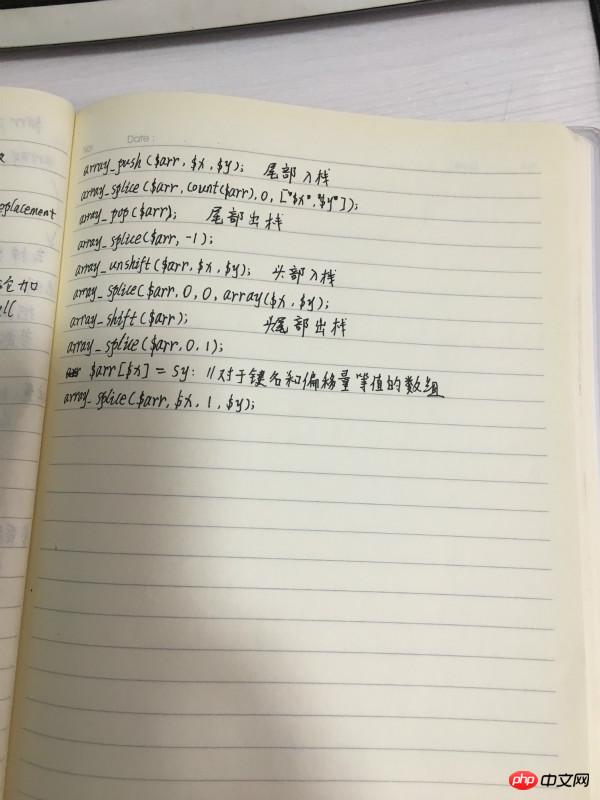 No.
Date :
array_push ($arr, $x, $y); 尾部入栈
array_splice ($arr, count($arr), 0, ["$x", "$y"]);
array_pop ($arr); 尾部出栈
array_splice ($arr, -1);
array_unshift ($arr, $x, $y); 头部入栈
array_splice ($arr, 0, 0, array($x, $y);
array_shift ($arr); 头部出栈
array_splice ($arr, 0, 1);
$arr[$x] = $y: //对于键名和偏移量等值的数组
array_splice ($arr, $x, 1, $y);
eplacement
加
php 中文网